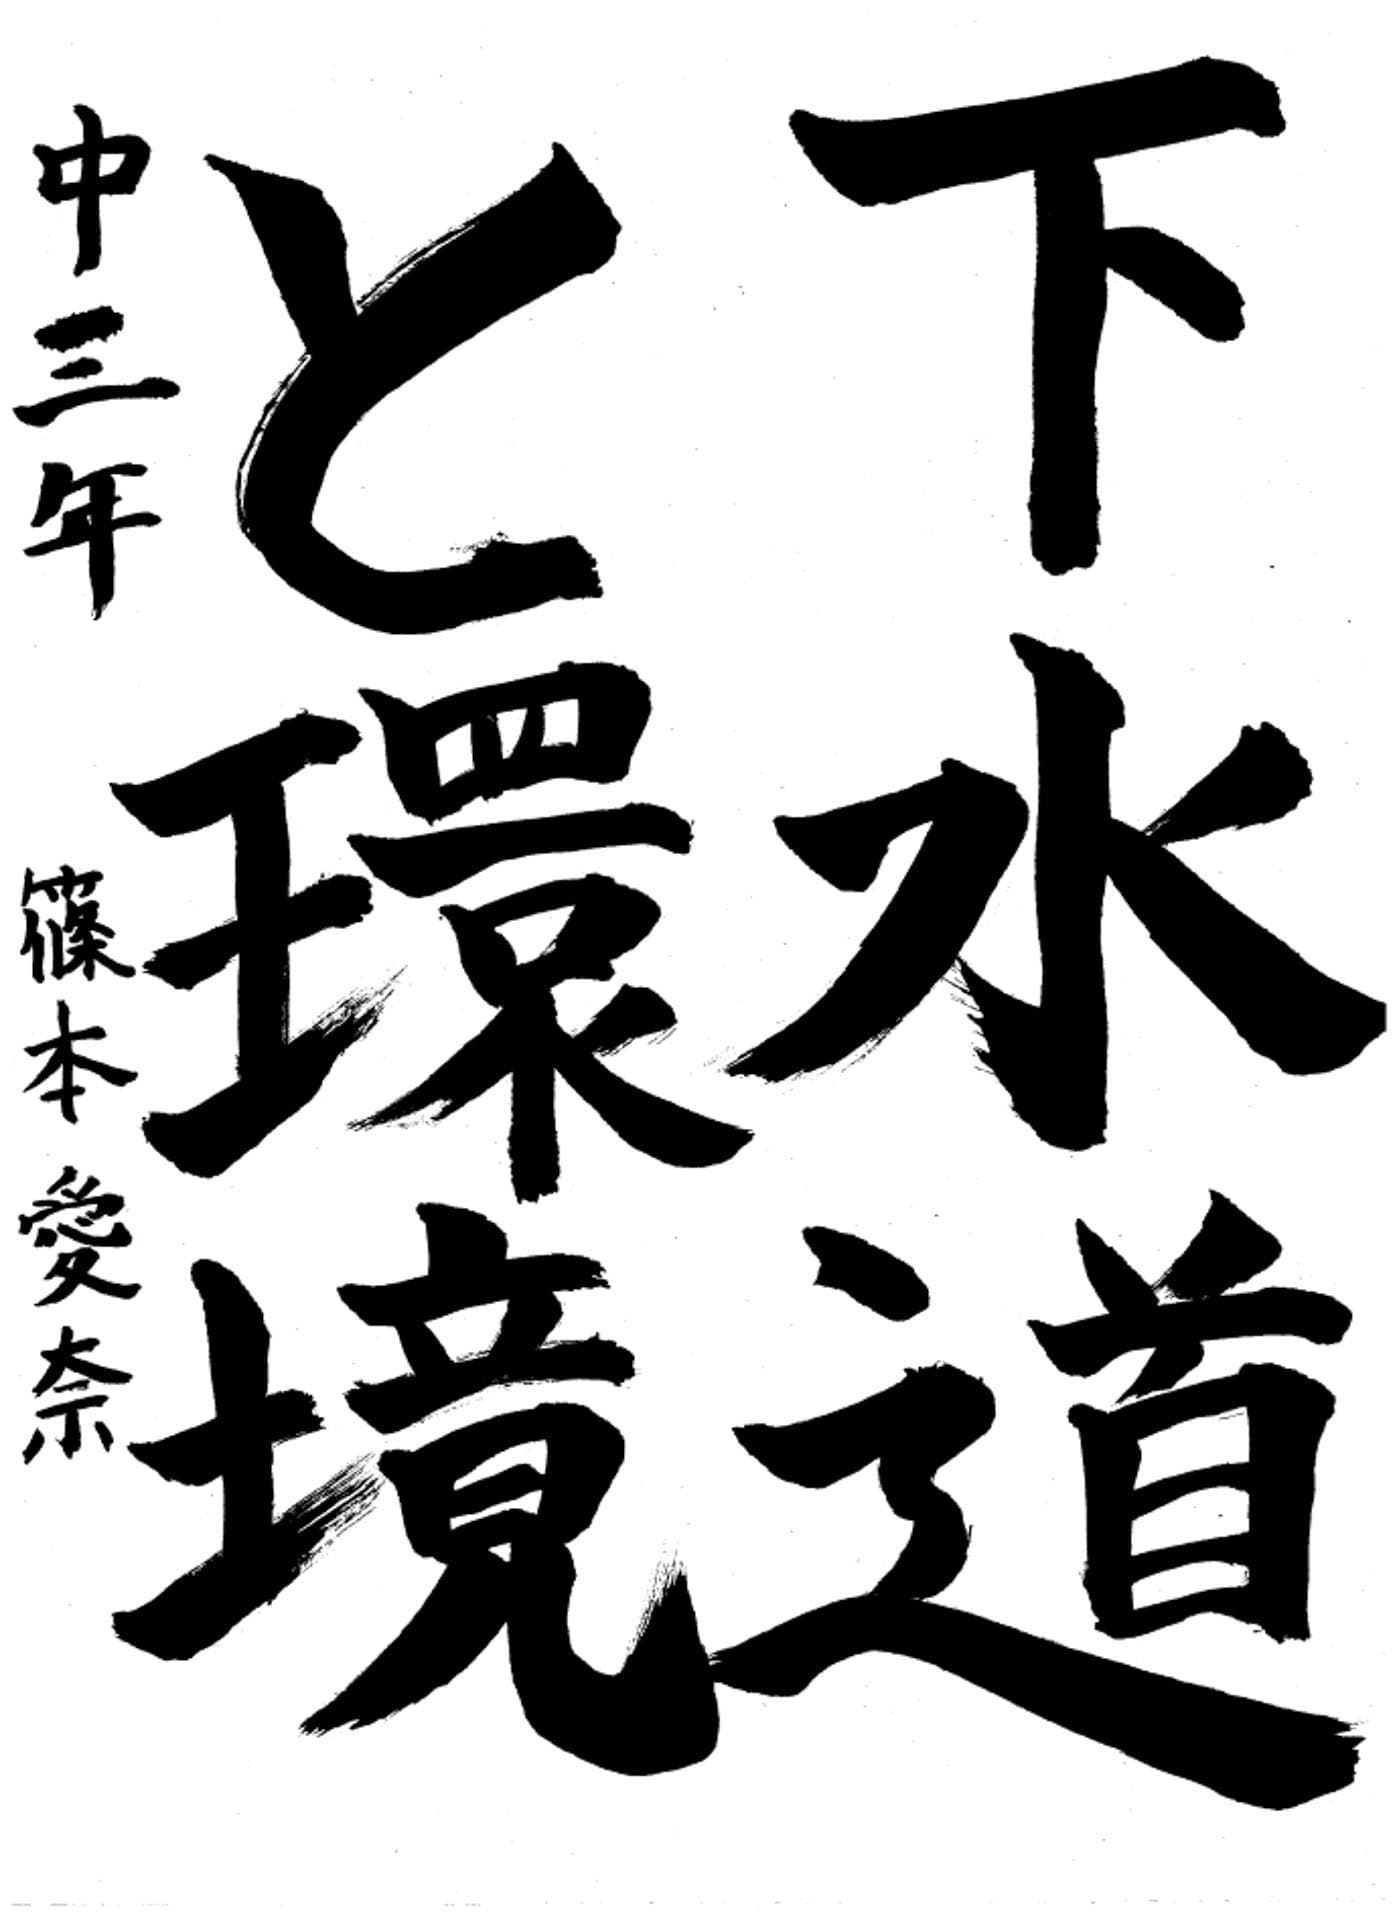 下水道
と環境
中三年 篠本愛奈